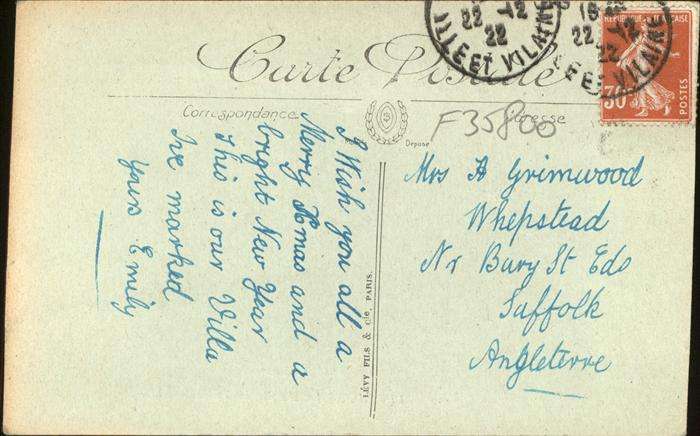 22 -12
22
ILLE ET VILAINE
22 -12
22
ET VILAINE
REPUBLIQUE FRANÇAISE
30c
POSTES
Carte Postale
Correspondance
Adresse
F35800
Déposé
I Wish you all a
Merry Xmas and a
bright New Year
This is our Villa
I've marked
yours Emily
LÉVY FILS & Cie, PARIS.
Mrs A Grimwood
Whepstead
Nr Bury St Eds
Suffolk
Angleterre